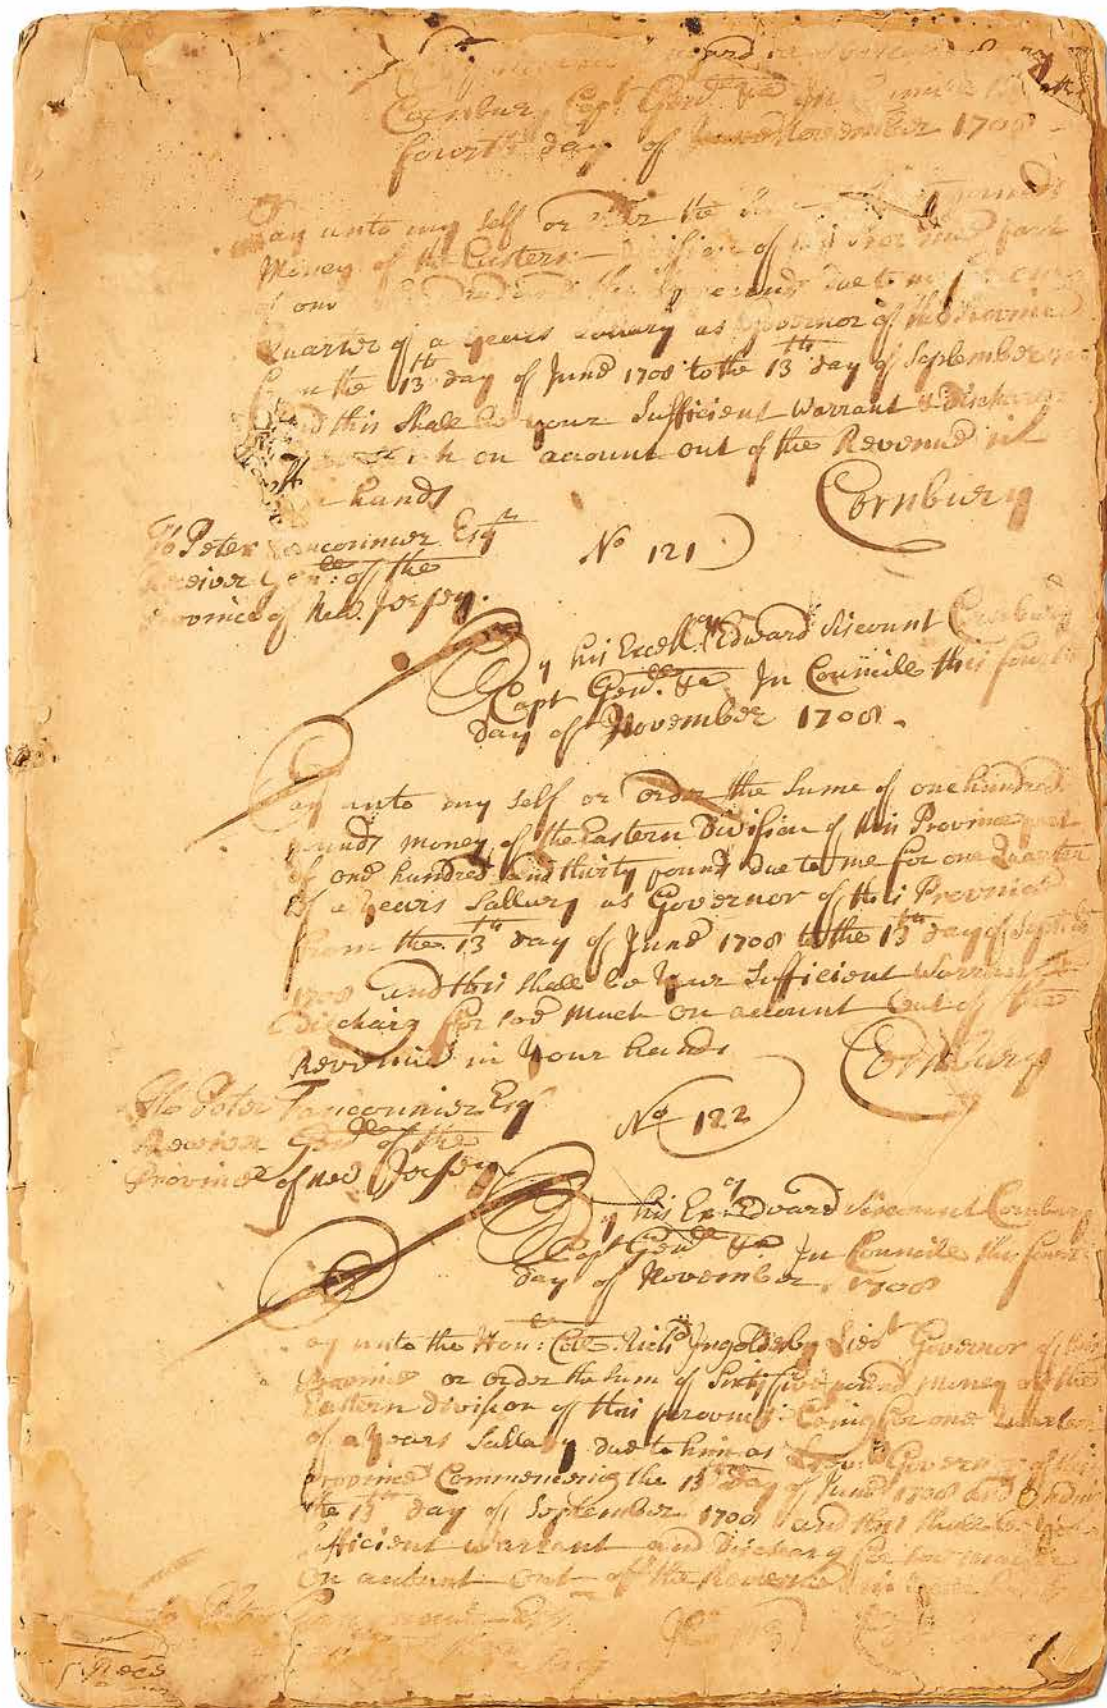 Cornbury Capt Genll &a In
fourth day of November 1708
Pay unto my self or order the
Money of the Eastern Division of
of one due to me
Quarter of a years Sallary as Governor of this Province
from the 13th day of June 1708 to the 13th day of September
and this shall be your Sufficient Warrant & discharge
on account out of the Revenue in
hands
Cornbury
To Peter Fauconnier Esqr
Receiver Genll: of the
Province of New Jersey.
No 121
By his Excelly Edward Viscount Cornbury
Capt Genll &a In Councile this fourth
day of November 1708.
Pay unto my self or order the Sume of one hundred
pounds money of the Eastern Division of this Province part
of one hundred and thirty pound due to me for one Quarter
of a years Sallary as Governor of this Province
from the 13th day of June 1708 to the 13th day of Septembr
1708 and this shall be your Sufficient Warrant &
discharg for soe much on account out of the
Revenue in your hands
Cornbury
To Peter Fauconnier Esqr
Receiver Genll of the
Province of New Jersey
No 122
By his Exy: Edward Viscount Cornbury
Capt Genll &a In Councile this fourth
day of November 1708
Pay unto the Hon: Coll. Richd Ingoldsby Lieut Governor of this
Province or order the Sum of Sixty five pound money of the
Eastern Division of this province being for one Quarter
of a years Sallary due to him as Governor of this
province Commencing the 13th day of June 1708 and
the 13th day of September 1708 and this shall be your
Sufficient warrant and discharg for soe much
on account out of the Revenue
To Peter Esqr